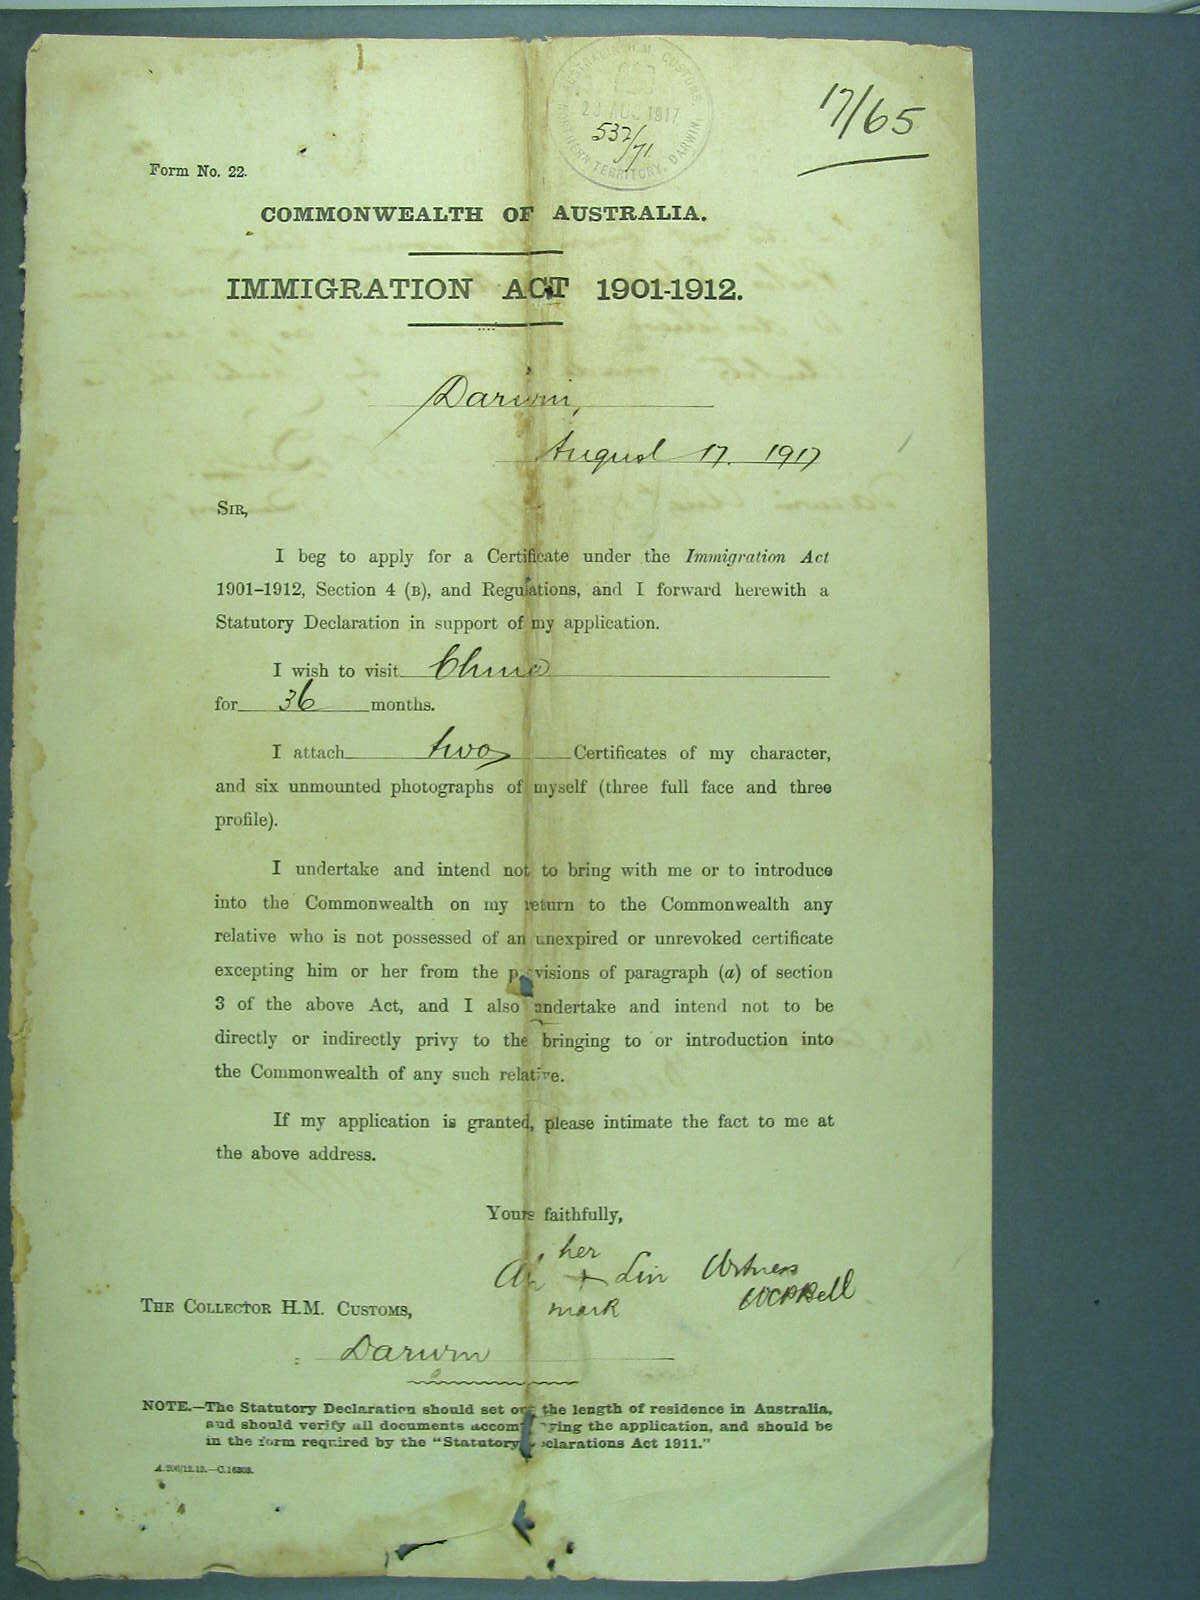 AUSTRALIA H.M. CUSTOMS,
AUG 1917
532/71
NORTHERN TERRITORY, DARWIN
17/65
Form No. 22.
COMMONWEALTH OF AUSTRALIA.
IMMIGRATION ACT 1901-1912.
Darwin,
August 17. 1917
SIR,
I beg to apply for a Certificate under the Immigration Act
1901-1912, Section 4 (B), and Regulations, and I forward herewith a
Statutory Declaration in support of my application.
I wish to visit China
for 36 months.
I attach two Certificates of my character,
and six unmounted photographs of myself (three full face and three
profile).
I undertake and intend not to bring with me or to introduce
into the Commonwealth on my return to the Commonwealth any
relative who is not possessed of an unexpired or unrevoked certificate
excepting him or her from the provisions of paragraph (a) of section
3 of the above Act, and I also undertake and intend not to be
directly or indirectly privy to the bringing to or introduction into
the Commonwealth of any such relative.
If my application is granted, please intimate the fact to me at
the above address.
Yours faithfully,
her
Ah + Lin Witness
mark
THE COLLECTOR H.M. CUSTOMS,
Darwin
NOTE.—The Statutory Declaration should set out the length of residence in Australia,
and should verify all documents accompanying the application, and should be
in the form required by the "Statutory Declarations Act 1911."